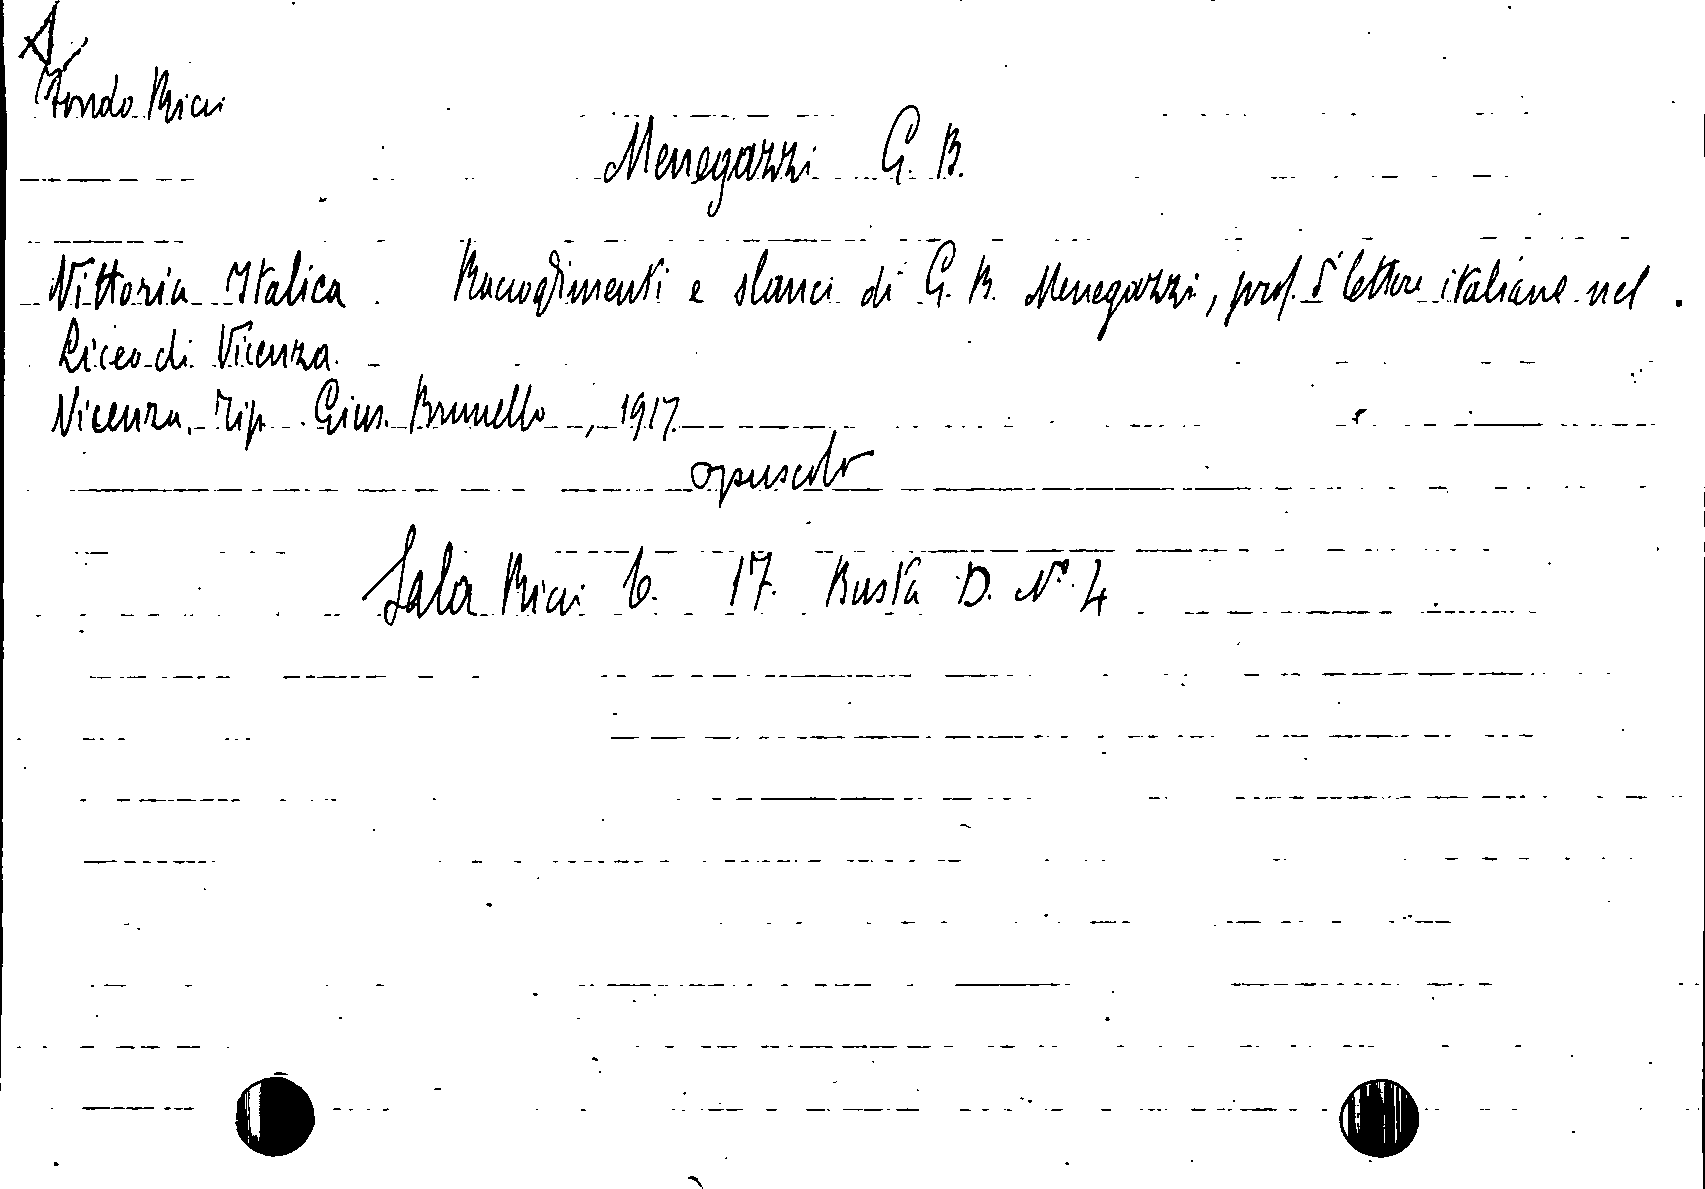 Fondo Ricci
Menegazzi G. B.
Vittoria Italica. Raccoglimenti e slanci di G. B. Menegazzi, prof. di lettere italiane nel
Liceo di Vicenza.
Vicenza, Tip. Gius. Brunello, 1917.
opuscolo
Sala Ricci 6. 17. Busta D. N° 4